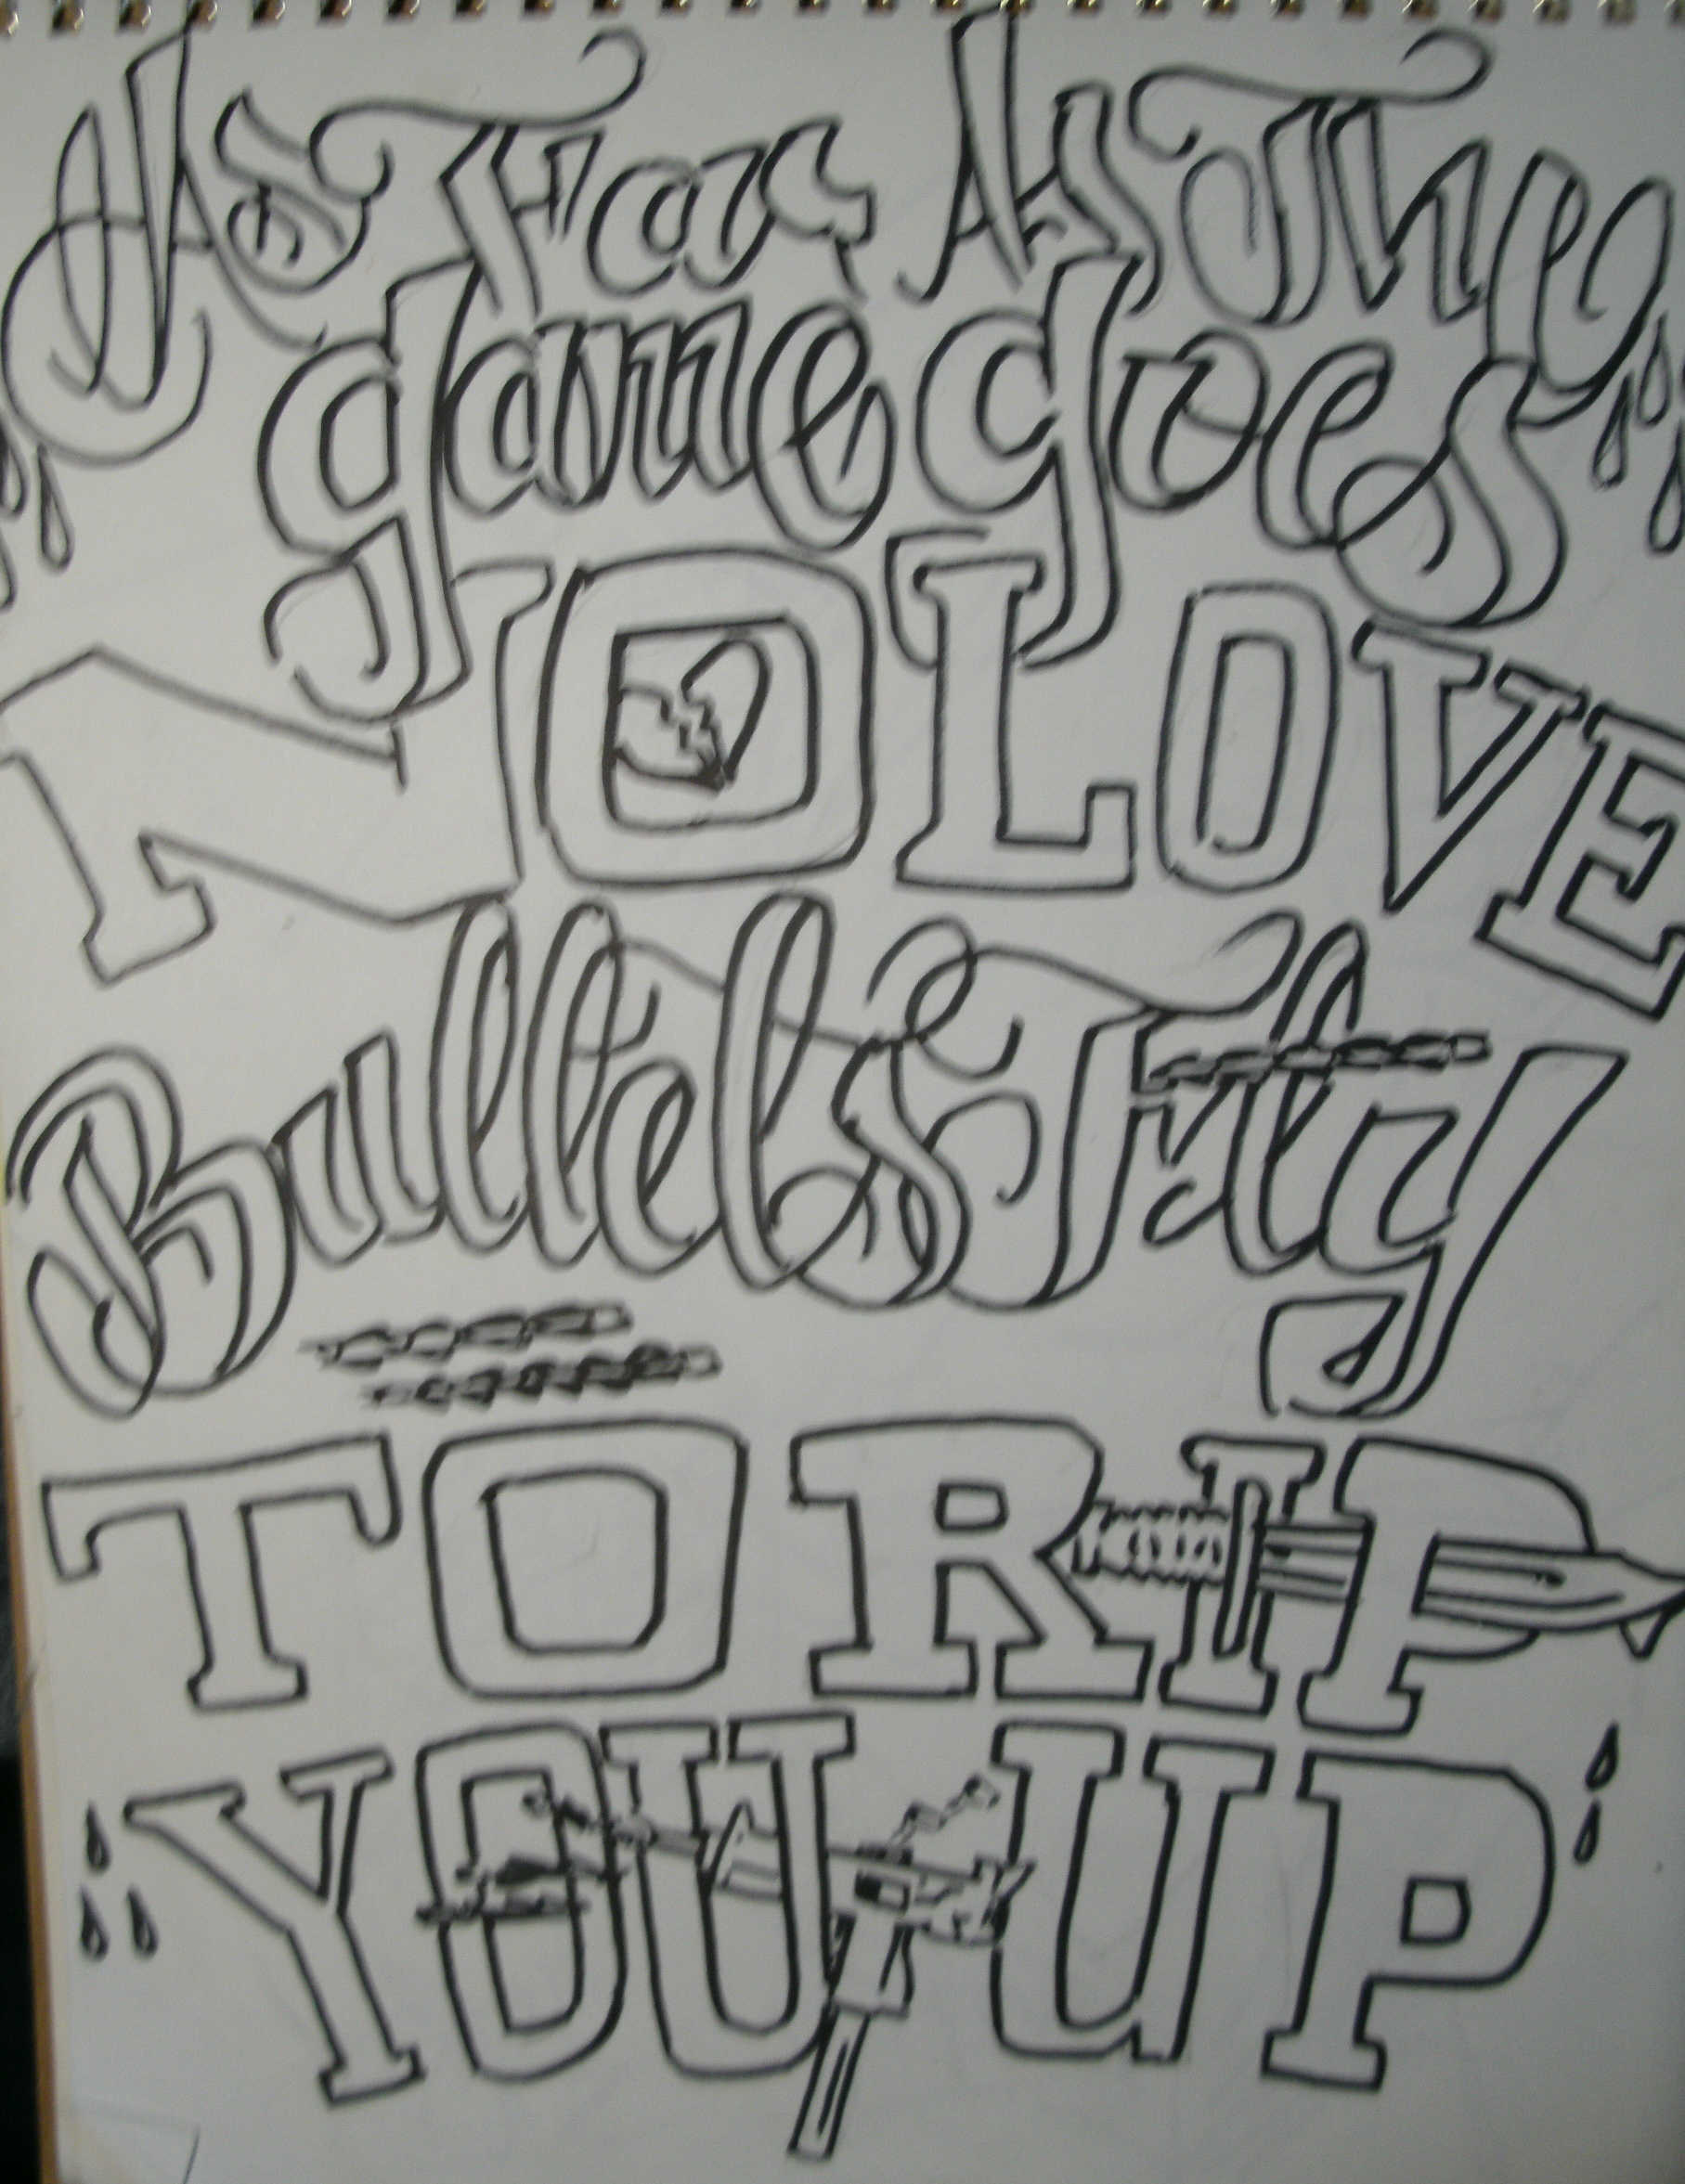 As Far As The
game goes
NO LOVE
Bullets Fly
TO RIP
YOU UP